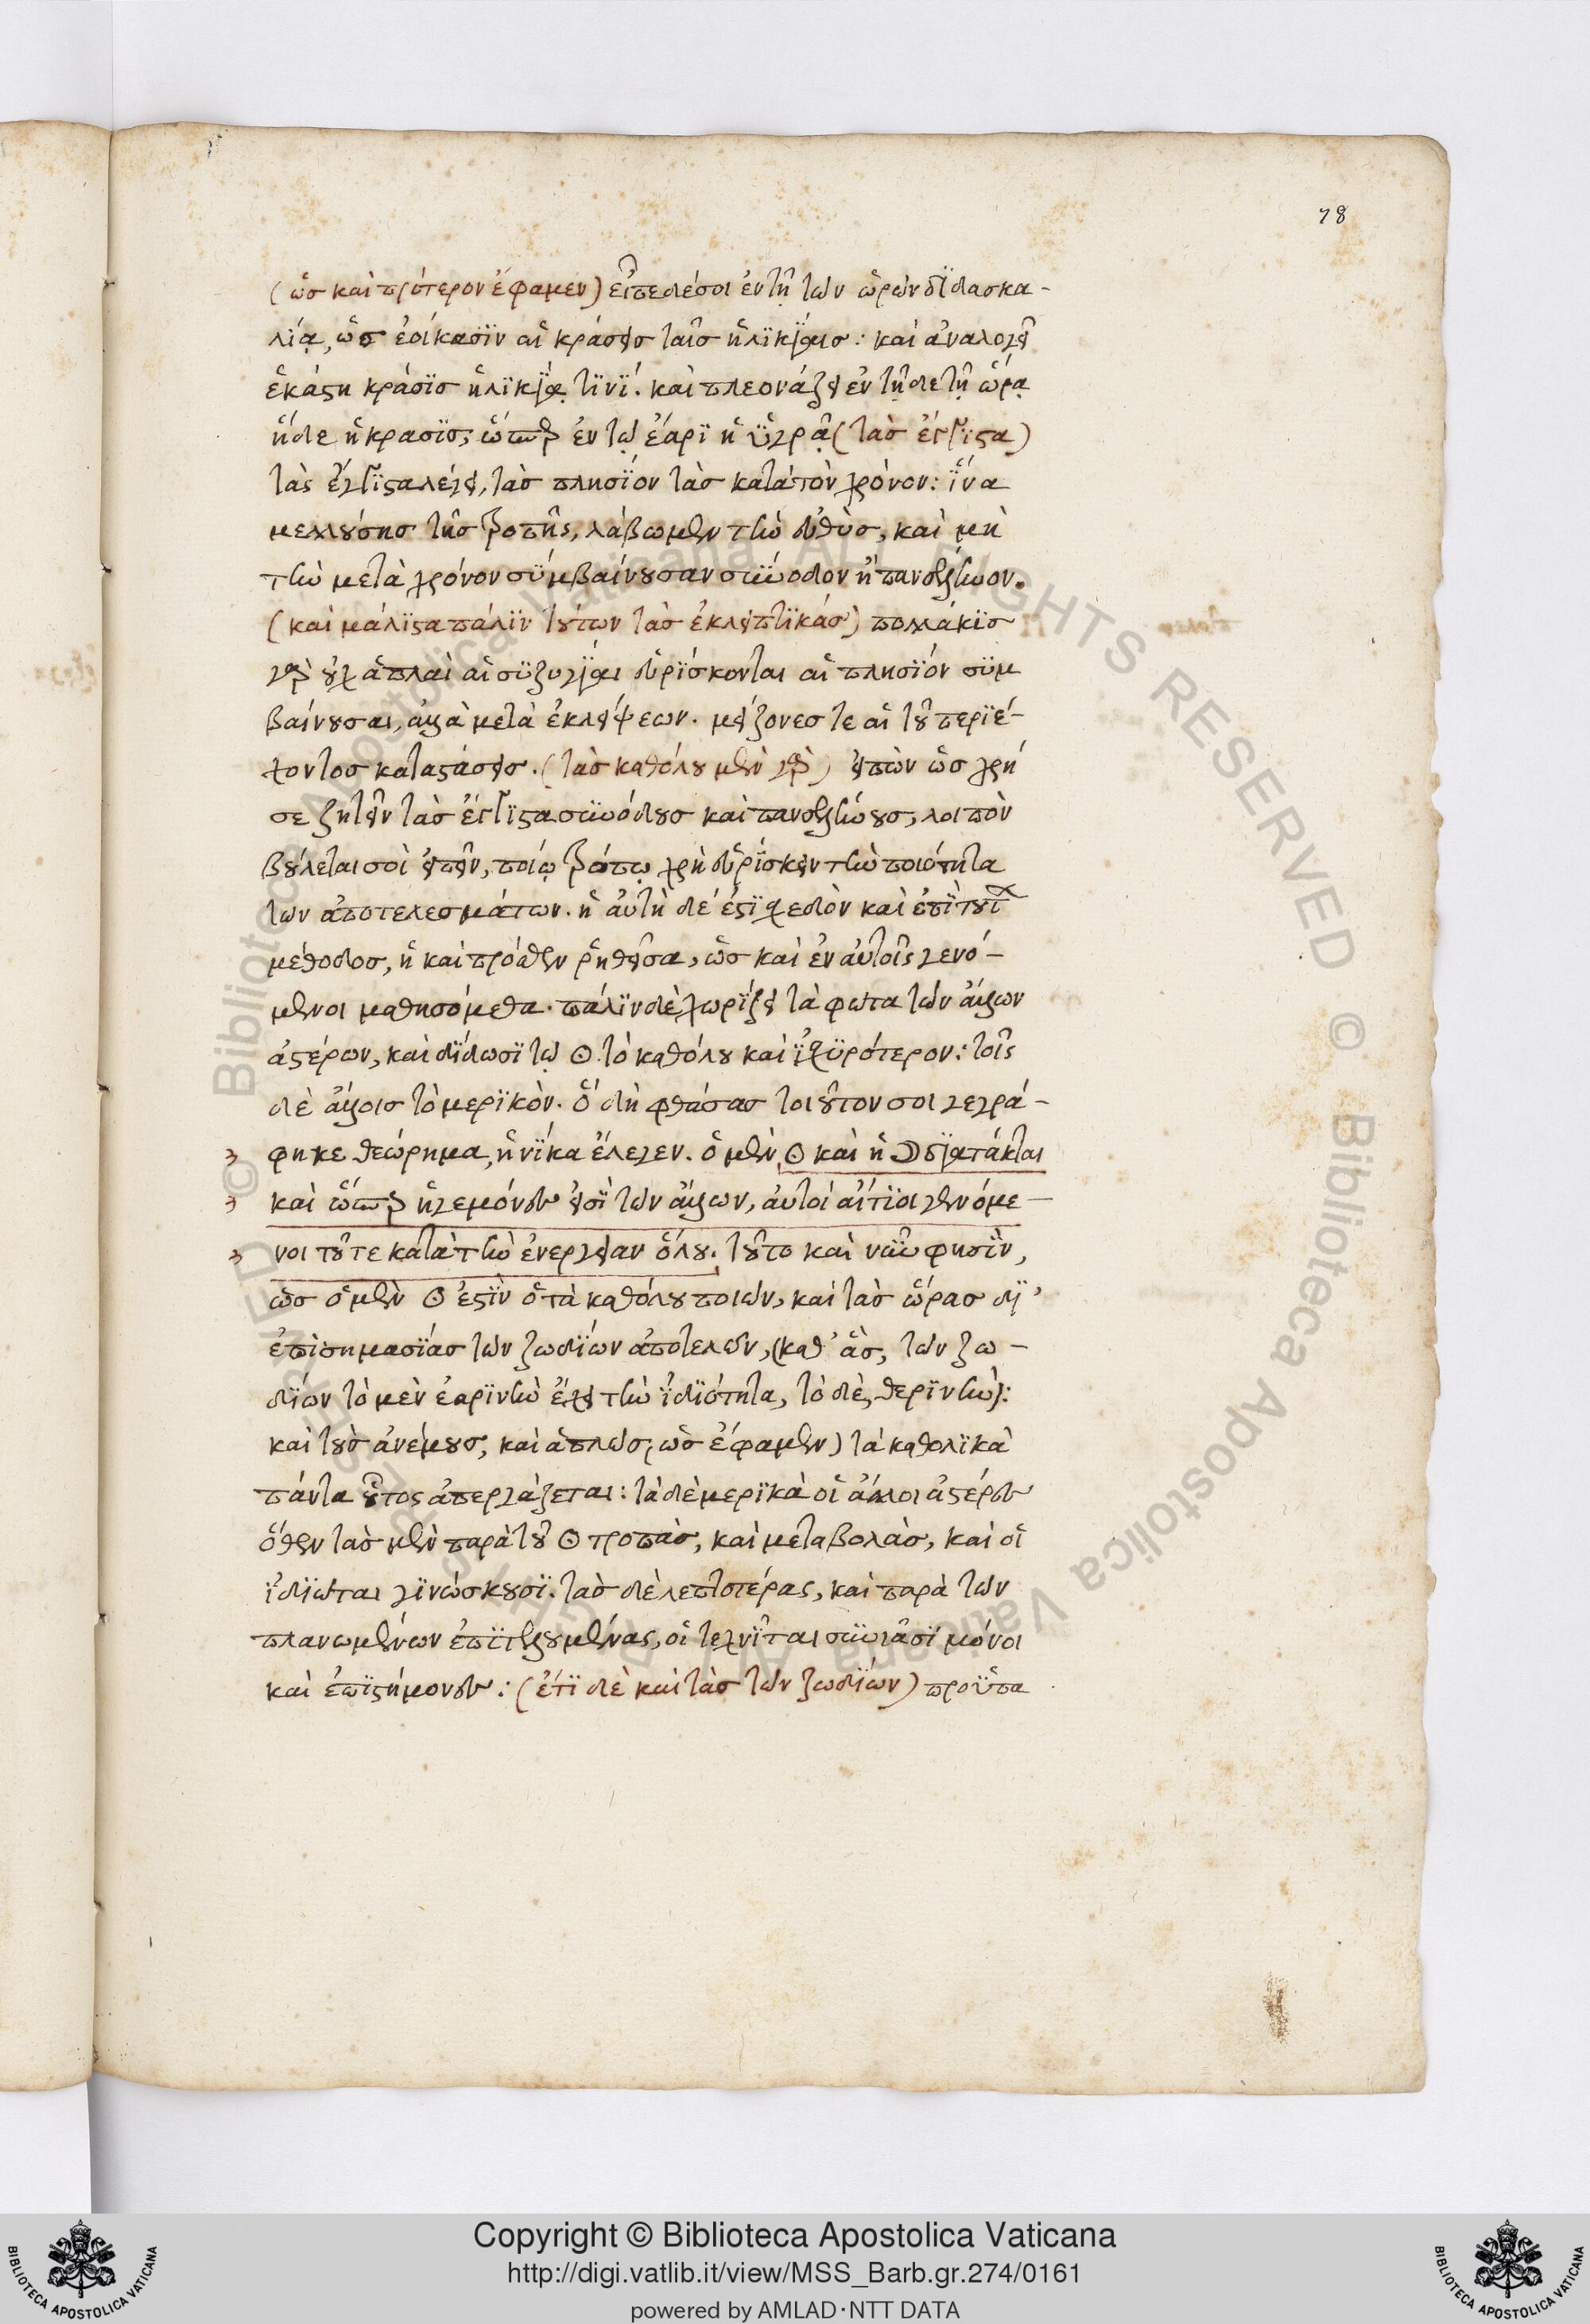 78
(ὡσ καὶ πρότερον ἔφαμεν) εἶπε δέ σοι ἐν τῇ τῶν ὡρῶν διδασκα-
λίᾳ, ὡσ ἐοίκασϊν αἱ κράσεισ ταῖσ ἡλϊκϊαισ: καὶ ἀναλογεῖ
ἑκάστη κράσϊσ ἡλϊκϊᾳ τϊνϊ. καὶ πλεονάζει ἐν τῇδε τῇ ὥρᾳ
ἥδε ἡ κρασϊσ, ὥσπερ ἐν τῷ ἔαρϊ ἡ ὑγρᾷ (τὰσ ἔγγϊστα)
τὰς ἔγγϊστα λέγει, τὰσ πλησϊόν τὰσ κατὰ τὸν χρόνον: ἵνα
μελλούσησ τῆσ τροπῆς, λάβωμεν τὴν εὐθὺσ, καὶ μὴ
τὴν μετὰ χρόνον συμβαίνουσαν σύνοδον ἢ πανσέληνον.
(καὶ μάλϊστα πάλϊν τούτων τὰσ ἐκλειπτϊκάσ) πολλάκϊσ
γὰρ οὐχ ἁπλαὶ αἱ συζυγϊαι εὑρϊσκονται αἱ πλησϊόν συμ
βαίνουσαι, ἀλλὰ μετὰ ἐκλείψεων. μείζονεσ τε αἱ τοῦ περϊέ-
χοντοσ καταστάσεισ. (τὰσ καθόλου μὲν γὰρ) εἰπὼν ὡσ χρή
σε ζητεῖν τὰσ ἔγγϊστα συνόδουσ καὶ πανσελήνουσ, λοιπὸν
βούλεται σοὶ εἰπεῖν, ποίῳ τρόπῳ χρὴ εὑρϊσκειν τὴν ποιότητα
τῶν ἀποτελεσμάτων. ἡ αὐτὴ δέ ἐστϊ σχεδὸν καὶ ἐπὶ τούτ
μέθοδοσ, ἡ καὶ πρόσθεν ῥηθεῖσα, ὡσ καὶ ἐν αὐτοῖς γενό-
μενοι μαθησόμεθα. πάλϊν δὲ χωρϊζει τὰ φῶτα τῶν ἄλλων
ἀστέρων, καὶ δϊδωσϊ τῷ ☉ τὸ καθόλου καὶ ϊσχϋρότερον: τοῖς
δὲ ἄλλοισ τὸ μερϊκὸν. ὃ δὴ φθάσασ τοιοῦτον σοι γεγρά-
φηκε θεώρημα, ἡνϊκα ἔλεγεν. ὁ μὲν ☉ καὶ ἡ ☽ δϊατάκται
καὶ ὥσπερ ἡγεμόνεσ εἰσϊ τῶν ἄλλων, αὐτοί αἴτϊοι γενόμε-
νοι τοῦτε κατὰ τὴν ἐνεργειαν ὅλου. τοῦτο καὶ νῦν φησϊν,
ὡσ ὁ μὲν ☉ ἐστϊν ὁ τὰ καθόλου ποιῶν, καὶ τὰσ ὥρασ δι’
ἐπϊσημασϊάσ τῶν ζωδϊων ἀποτελῶν, (καθ’ ἃσ, τῶν ζω-
δϊων τὸ μὲν ἐαρϊνὴν ἔχει τὴν ϊδϊότητα, τὸ δὲ, θερϊνὴν):
καὶ τοὺσ ἀνέμουσ, καὶ ἁπλῶσ, ὡσ ἔφαμεν) τὰ καθολϊκὰ
πάντα οὗτος ἀπεργάζεται: τὰ δὲ μερϊκὰ οἱ ἄλλοι ἀστέρεσ
ὅθεν τὰσ μὲν παρὰ τοῦ ☉ τροπὰσ, καὶ μεταβολὰσ, καὶ οἱ
ϊδϊῶται γϊνώσκουσϊ. τὰσ δὲ λεπτοτέρας, καὶ παρὰ τῶν
πλανωμένων ἐπϊτελουμένας, οἱ τεχνῖται συνιᾶσϊ μόνοι
καὶ ἐπϊστήμονεσ: (ἔτϊ δὲ καὶ τὰσ τῶν ζωδϊων) προϋπα
Copyright © Biblioteca Apostolica Vaticana
http://digi.vatlib.it/view/MSS_Barb.gr.274/0161
powered by AMLAD·NTT DATA